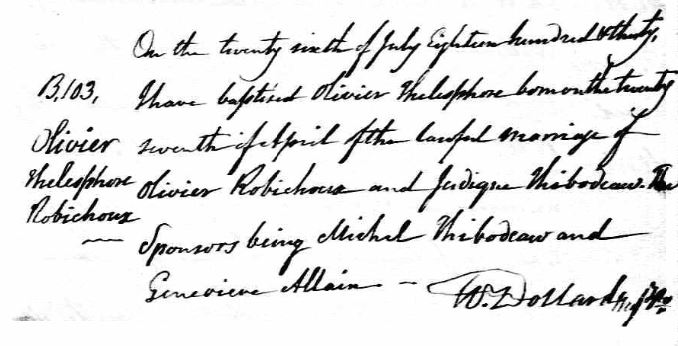 On the twenty sixth of July Eighteen hundred & thirty,
B, 103,
I have baptised Olivier Thelesphore born on the twenty
Olivier
seventh of April of the lawful marriage of
Thelesphore
Olivier Robichoux and Judique Thibodeaw. The
Robichoux
Sponsors being Michel Thibodeaw and
Genevieve Allain –
W. Dollard